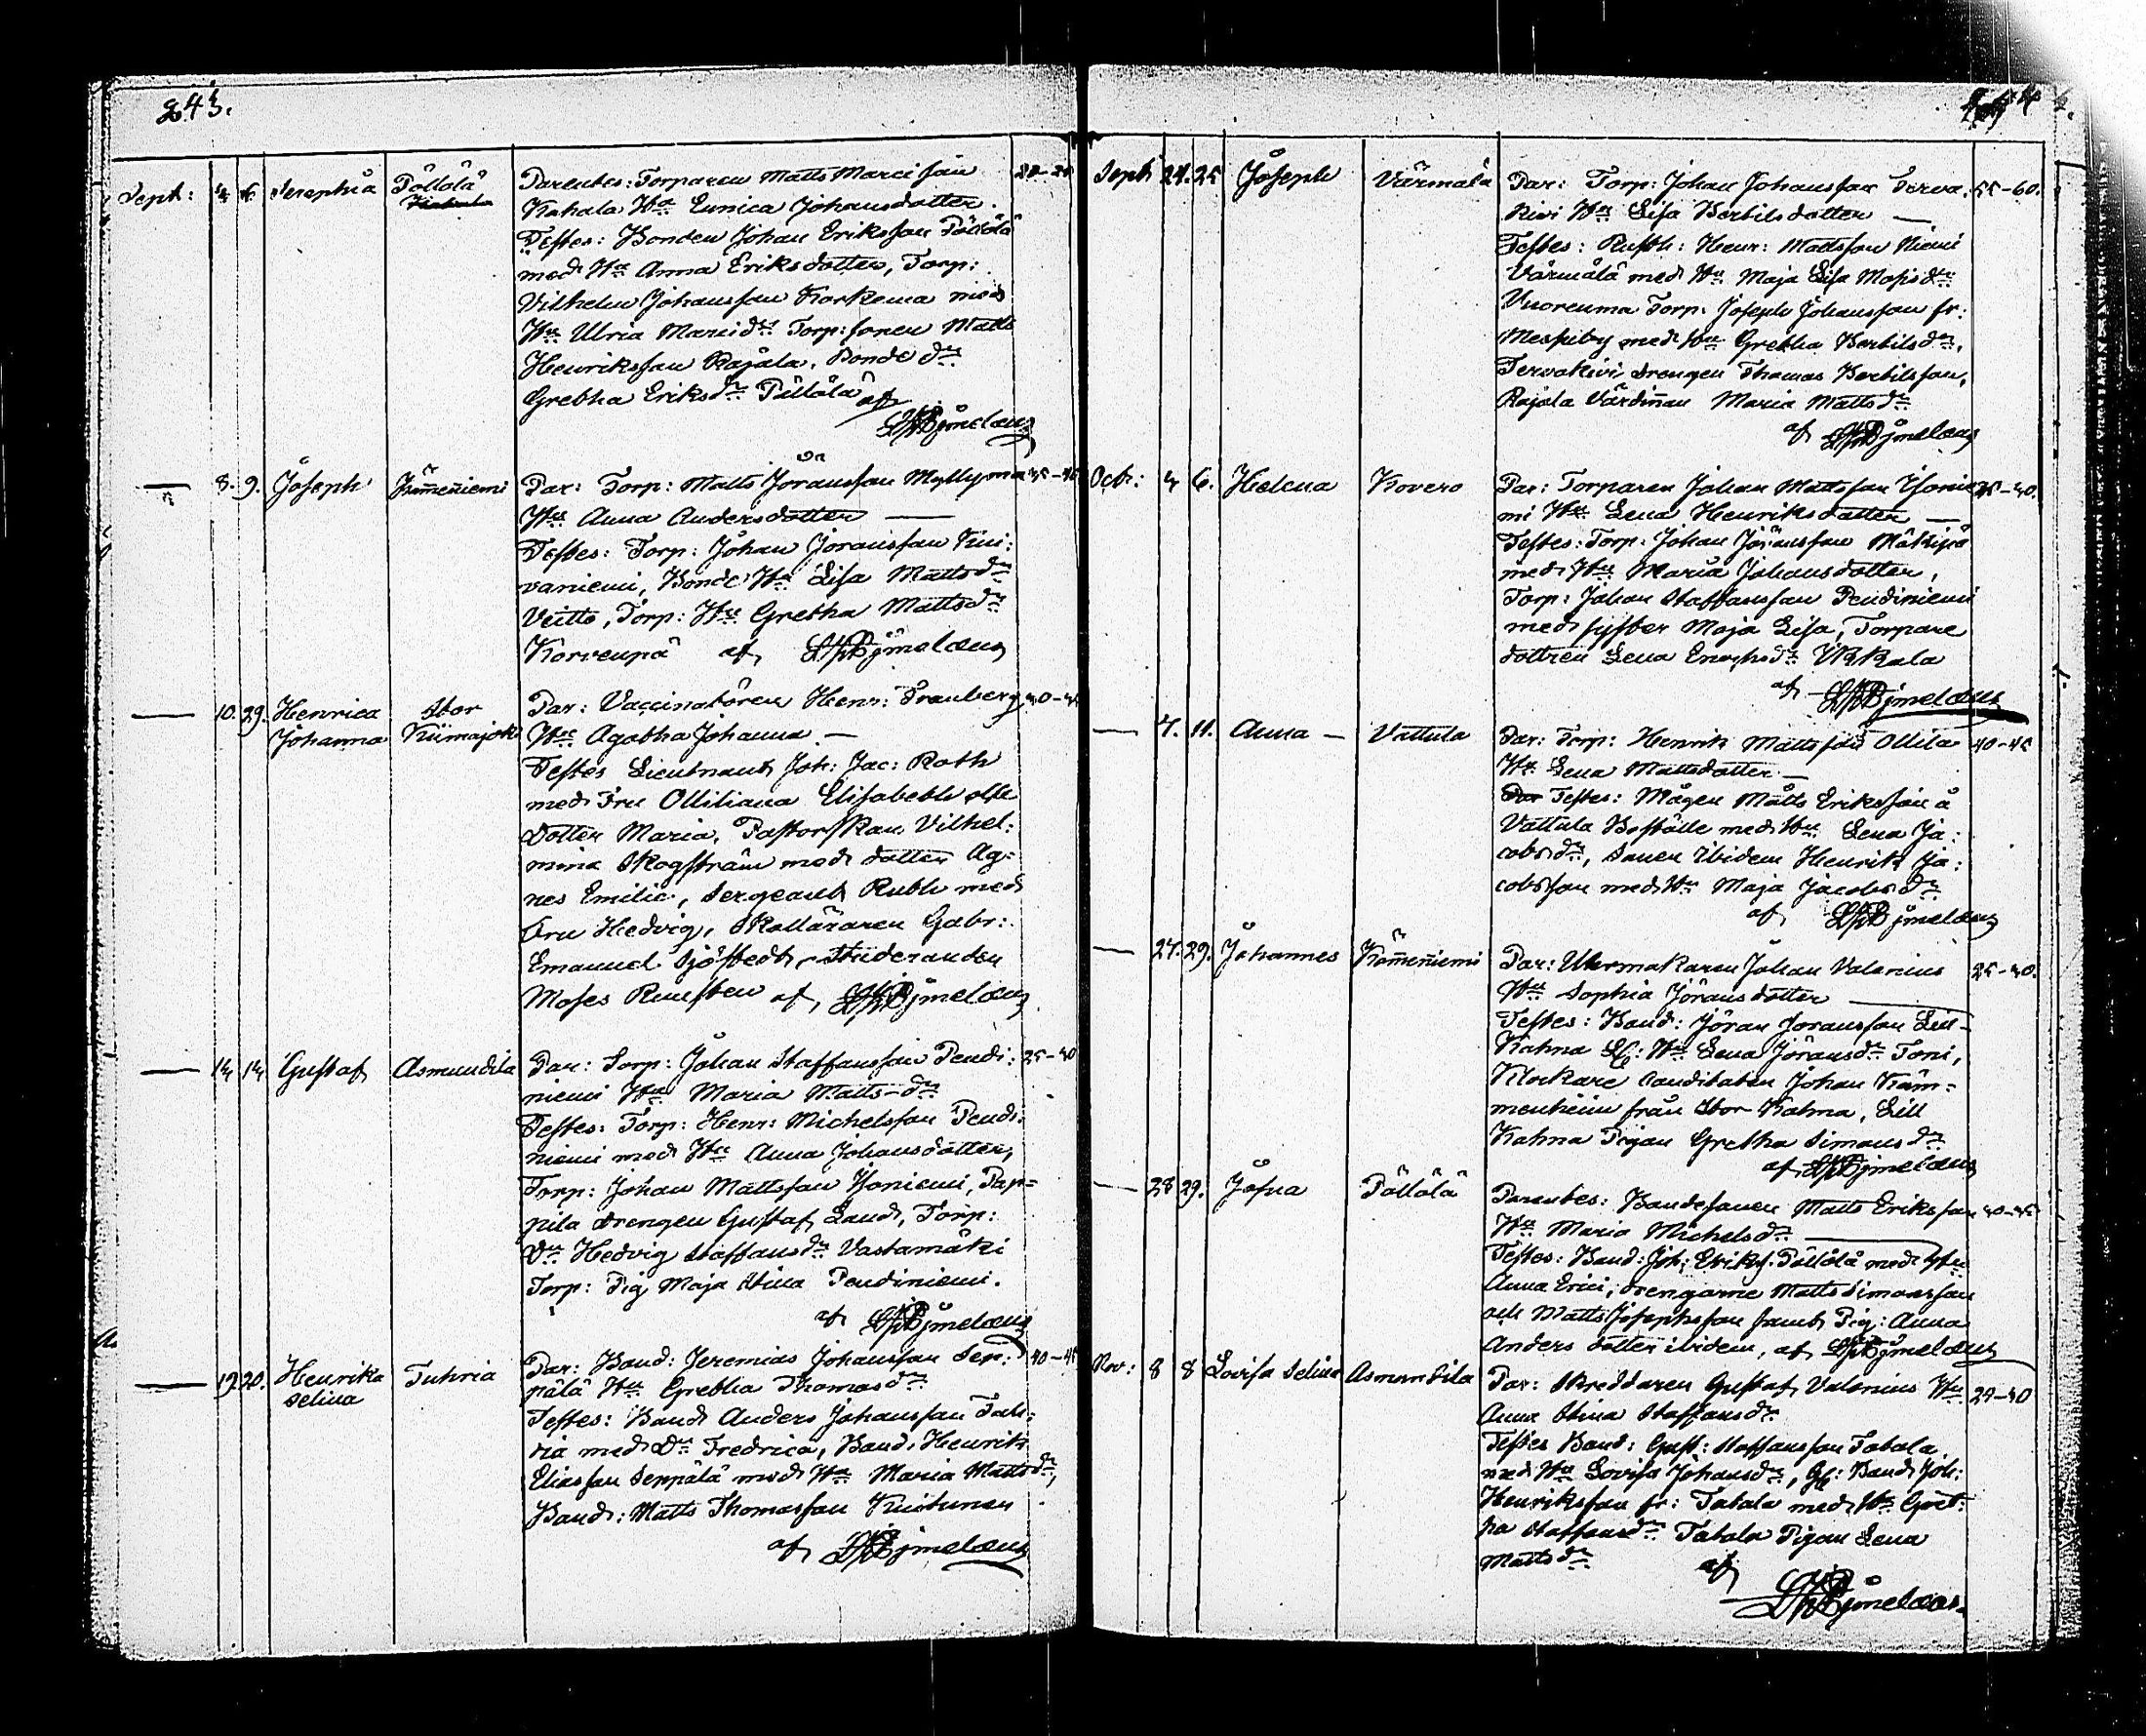 243.
Sept: 4 6. Seraphia Pöllölä Parentes: Torparen Matts Mariæ son
Kahala Hu Eunica Johansdotter.
Testes: Bonden Johan Eriksson Pöllölä
med Hu Anna Eriksdotter, Torp:
Vilhelm Johansson Korkema med
Hu Ulria Marci dr Torp: sonen Matts
Henriksson Rajala, Bonde dr
Gretha Eriks dr Pöllölä af
— 8. 9. Joseph Kämmeniemi Par: Torp: Matts Jöransson Myllyma 35-40
Hu Anna Andersdotter —
Testes: Torp: Johan Joransson Kui:
vaniemi, Bonde Hu Lisa Matts dr
Veitto, Torp: Hu Gretha Matts dr
Korvenpä af
— 10. 29. Henrica Johanna Stor Kiimajoki Par: Vaccinatören Henr: Tranberg 40-45
Hu Agatha Johanna —
Testes Lieutnant Joh: Jac: Roth
med Fru Ottiliana Elisabeth
dotter Maria, Pastorskan Vilhel:
mina Skogström med dotter Ag:
nes Emilie, Sergeant Ruth med
Fru Hedvig, Skolläraren Gabr:
Emanuel Sjöstedt, Studeranden
Moses Runsten af
— 14 14 Gustaf Asmundila Par: Torp: Johan Staffansson Pendi: 25-30
niemi Hu Maria Matts-dr
Testes: Torp: Henr: Michelsson Pendi:
niemi med Hu Anna Johansdotter,
Torp: Johan Mattsson Isoniemi, Pap=
pila drengen Gustaf Lund, Torp:
Dr Hedvig Staffans dr Vastamäki
Torp: Pig Maja Stina Pendiniemi.
af
— 19. 20. Henrika Selina Tuhria Par: Bond: Jeremias Johansson Sep: 40-45
pälä Hu Gretha Thomas dr
Testes: Bond Anders Johansson Tuh:
ria med Dr Fredrica, Bond. Henrik
Eliasson Seppälä med Hu Maria Matts dr,
Bond: Matts Thomasson Knutunen
af
Sept 24. 25 Joseph Värmälä Par: Torp: Johan Johansson Terva. 55-60.
kivi Hu Lisa Bertilsdotter —
Testes: Rusth: Henr: Mattsson Niemi
Värmälä med Hu Maja Lisa Mosis dr
Vuorenma Torp: Joseph Johansson fr:
Messuby med Hu Gretha Bertils dr,
Tervakivi drengen Thomas Bertilsson,
Rajala Värdinnan Maria Matts dr
af
Oct: 4 6. Helena Kovero Par: Torparen Johan Mattsson Isonie 35-40.
mi Hu Lena Henriksdotter —
Testes: Torp: Johan Jöransson
med Hu Maria Johansdotter,
Torp: Johan Staffansson Pendiniemi
med syster Maja Lisa, Torpare
dottren Lena Enochs dr Ukkala
af
— 7. 11. Anna — Vattula Par: Torp: Henrik Mattsson Ollila 40-45
Hu Lena Mattsdotter —
Testes: Mågen Matts Eriksson å
Vattula Boställe med Hu Lena Ja:
cobs dr, Sonen ibidem Henrik Ja:
cobsson med Hu Maja Jacobs dr
af
— 27. 29. Johannes Kämmeniemi Par: Urmakaren Johan Valenius 25-30.
Hu Sophia Jöransdotter —
Testes: Bond: Jöran Joransson Lill-
Kahna Hu Lena Jörans dr Toni,
Klockare Canditaten Johan Käm=
menheim från Stor Kahna, Lill
Kahna Pigan Gretha Simons dr
af
— 28 29. Josua Pöllölä Parentes: Bondesonen Matts Eriksson 40-45
Hu Maria Michels dr —
Testes: Bond: Joh: Eriks. Pöllölä med Hu
Anna Erici, drengarne Matts Simonsson
och Matts Josephsson samt Pig: Anna
Anders dotter ibidem, af
Nov: 8 8 Lovisa Selina Asmundila Par: Skreddaren Gustaf Valenius Hu 29-30
Anna Stina Staffans dr
Testes Bond: Gust: Staffansson Tabala
med Hu Lovisa Johans dr, Bond Joh:
Henriksson fr: Tabala med Hu Gret:
ha Staffans dr Tabala Pigan Lena
Matts dr af